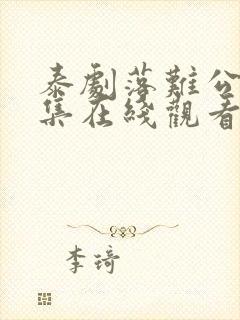 泰劇落難公
集在綫觀看
李琦